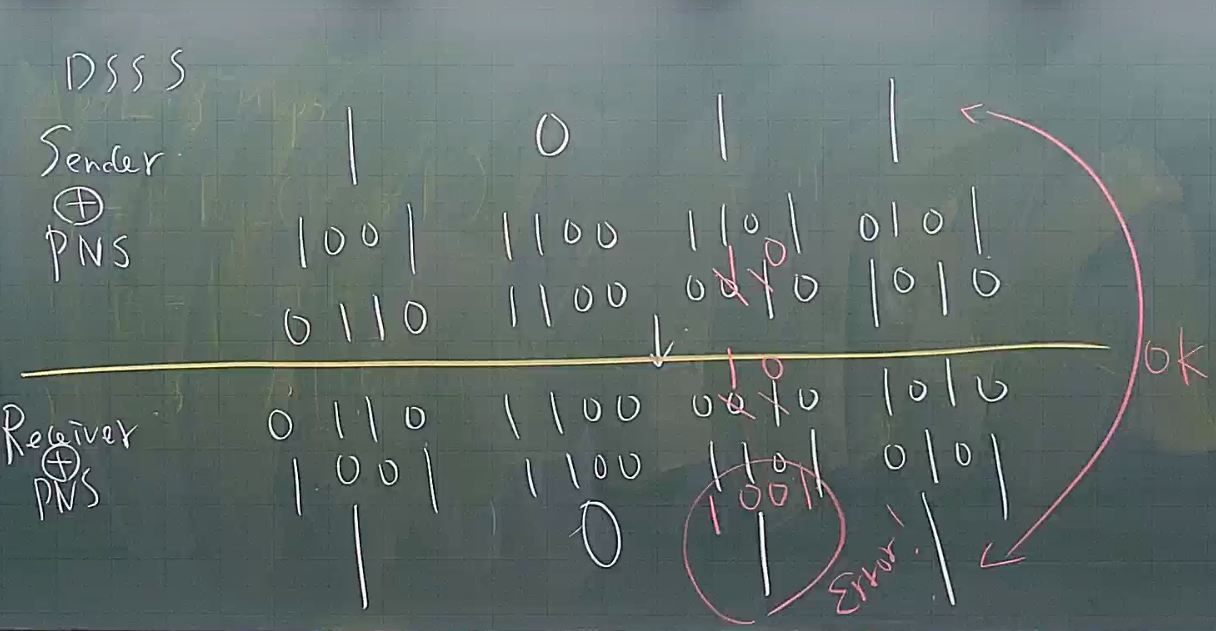 DSSS
Sender 1 0 1 1
⊕
PNS 1001 1100 1101 0101
1 0
0110 1100 0010 1010
1 0
Receiver 0110 1100 0010 1010
⊕
PNS 1001 1100 1101 0101
1001
1 0 1 Error! 1
OK